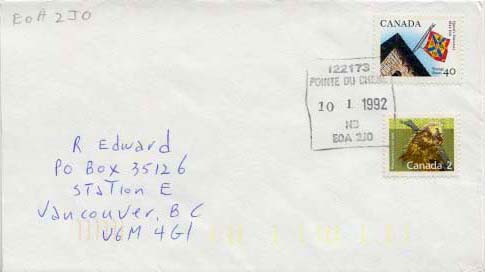 E0A 2J0
CANADA
40
122173
POINTE DU CHENE
10 1 1992
NB
E0A 2J0
Canada 2
R Edward
PO Box 35126
STaTion E
Vancouver, BC
V6M 4G1